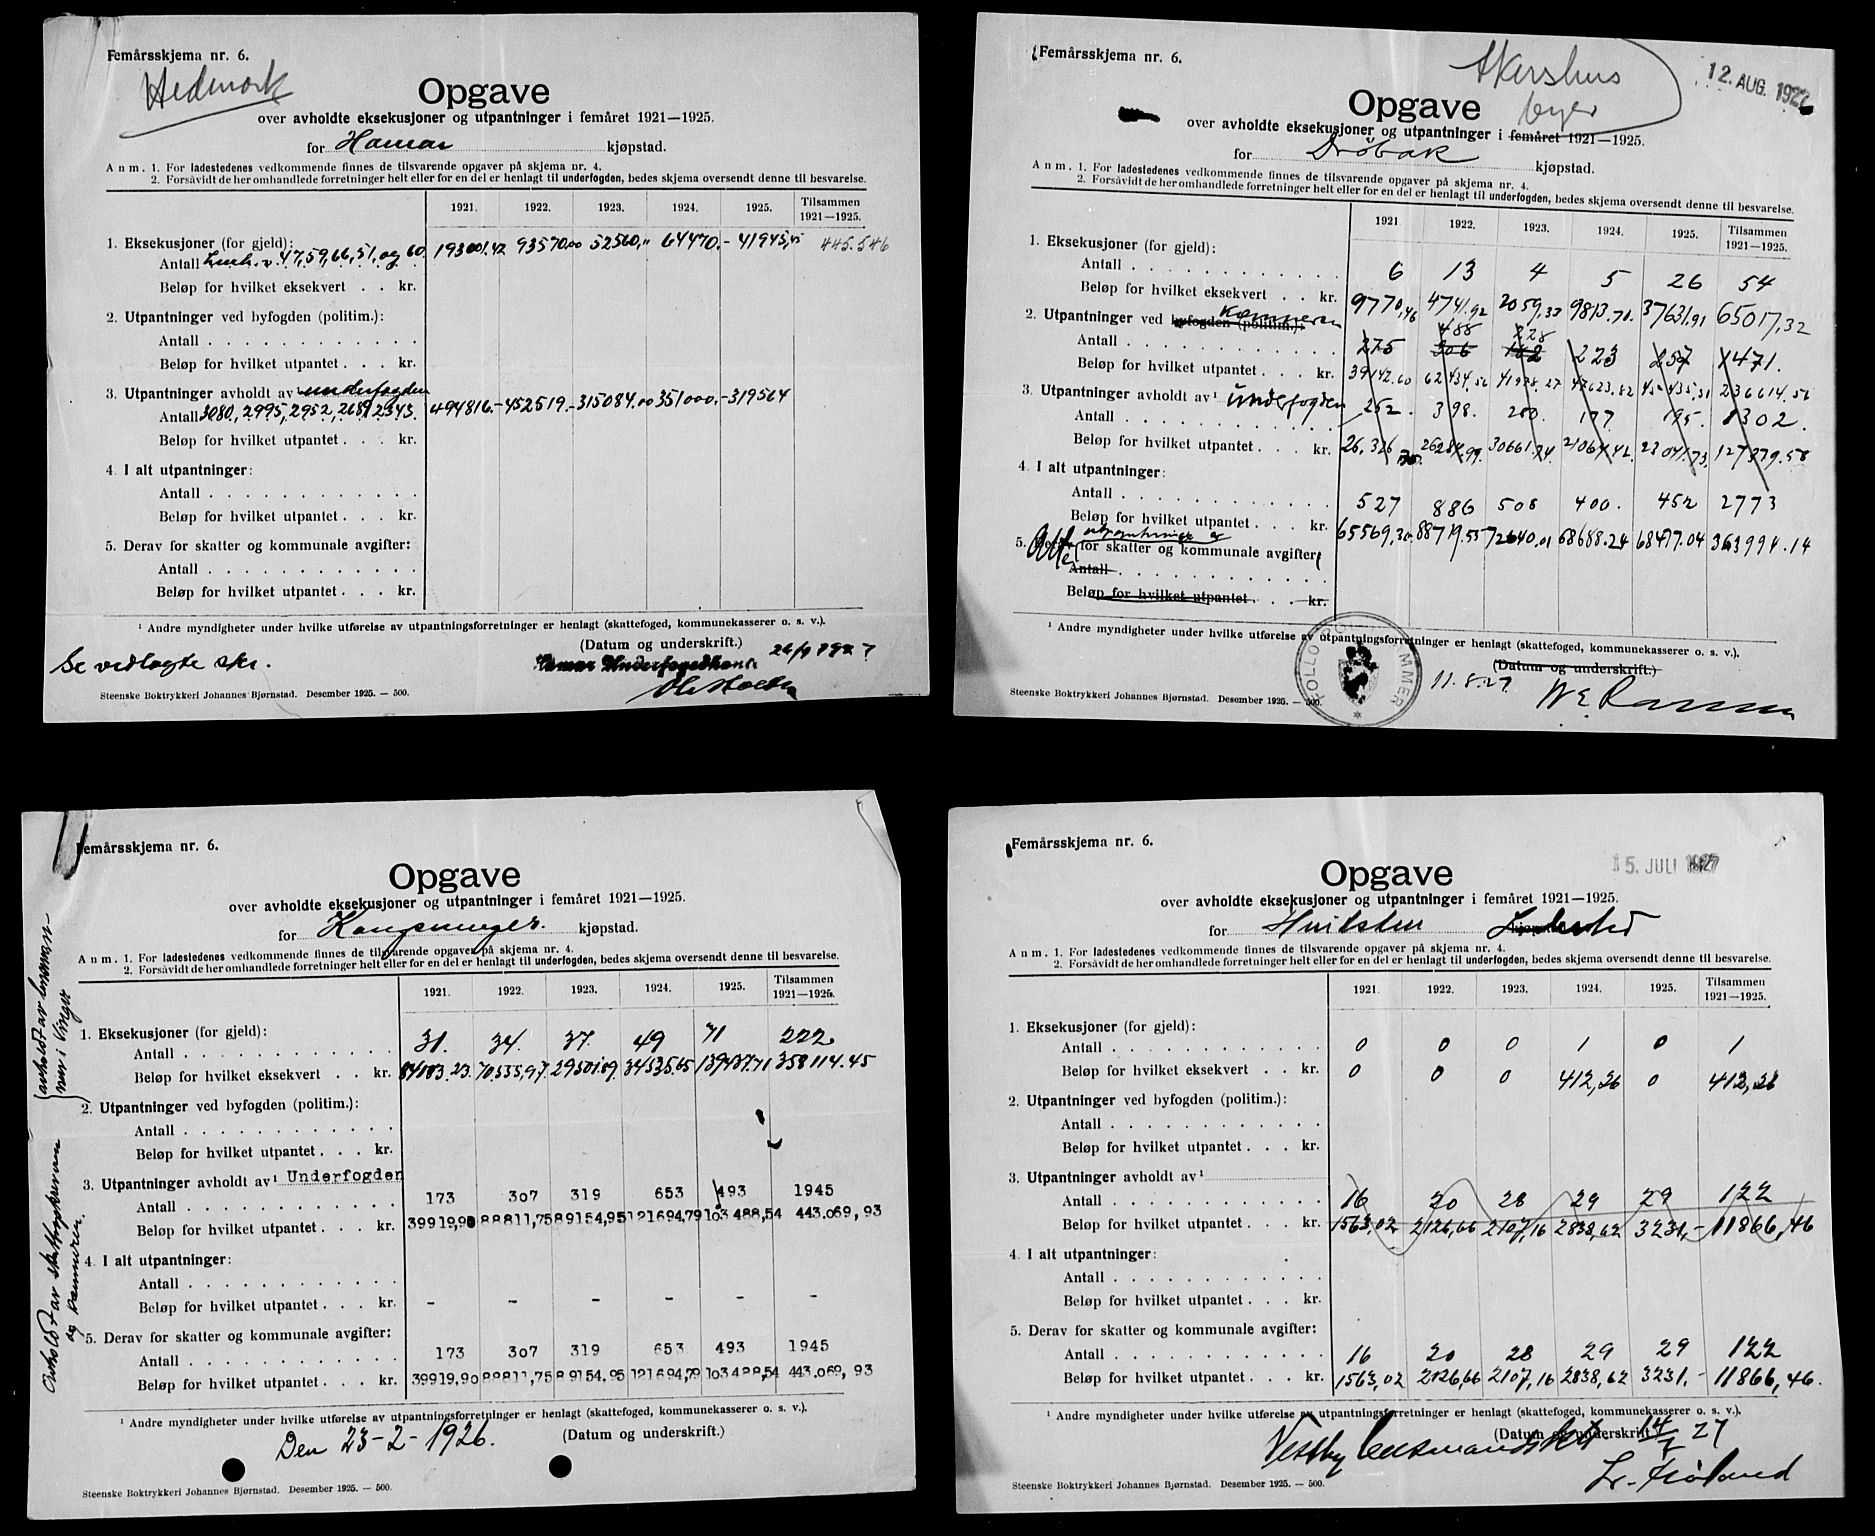 Femårsskjema nr. 6.
Hedmark
Opgave
over avholdte eksekusjoner og utpantninger i femåret 1921—1925.
for Hamar kjøpstad.
Anm. 1. For ladestedenes vedkommende finnes de tilsvarende opgaver på skjema nr. 4.
2. Forsåvidt de her omhandlede forretninger helt eller for en del er henlagt til underfogden, bedes skjema oversendt denne til besvarelse.
1921. 1922. 1923. 1924. 1925. Tilsammen 1921—1925.
1. Eksekusjoner (for gjeld):
Antall 47, 59, 66, 51, og 60. 193001.42 93570.00 52560,00 64470.- 41945,45 445.546
Beløp for hvilket eksekvert . . kr.
2. Utpantninger ved byfogden (politim.):
Antall . . . . . . . . . . . .
Beløp for hvilket utpantet . . . kr.
3. Utpantninger avholdt av underfogden
Antall 3080, 2995, 2952, 2689, 2343. 494816.- 452519.- 315084.00 351000.- 319564
Beløp for hvilket utpantet . . . kr.
4. I alt utpantninger:
Antall . . . . . . . . . . . .
Beløp for hvilket utpantet . . . kr.
5. Derav for skatter og kommunale avgifter:
Antall . . . . . . . . . . . .
Beløp for hvilket utpantet . . . kr.
¹ Andre myndigheter under hvilke utførelse av utpantningsforretninger er henlagt (skattefoged, kommunekasserer o. s. v.).
(Datum og underskrift.)
Se vedlagte skr. Hamar Underfogedkont. 26/9 1927
Steenske Boktrykkeri Johannes Bjørnstad. Desember 1925. — 500.
Femårsskjema nr. 6.
Akershus
byer
12. AUG. 1927
Opgave
over avholdte eksekusjoner og utpantninger i femåret 1921—1925.
for Drøbak kjøpstad.
Anm. 1. For ladestedenes vedkommende finnes de tilsvarende opgaver på skjema nr. 4.
2. Forsåvidt de her omhandlede forretninger helt eller for en del er henlagt til underfogden, bedes skjema oversendt denne til besvarelse.
1921 1922. 1923. 1924. 1925. Tilsammen 1921—1925.
1. Eksekusjoner (for gjeld):
Antall . . . . . . . . . . . . 6 13 4 5 26 54
Beløp for hvilket eksekvert . . kr. 9770,46 4741.92 3059,33 9813.70. 37631.91 65017,32
2. Utpantninger ved byfogden (politim.): Kæmneren
488 228
Antall . . . . . . . . . . . . 275 306 162 223 257 1471.
Beløp for hvilket utpantet . . . kr. 39142.60 62434.56 41978.27 47623.82 45435,31 236614.56
3. Utpantninger avholdt av¹ underfogden
Antall . . . . . . . . . . . . 252. 398. 280. 177 195. 1302.
Beløp for hvilket utpantet . . . kr. 26,326 26284.99. 30661.74. 21064.42. 23041.73. 127379.58
4. I alt utpantninger:
Antall . . . . . . . . . . . . 527 886 508 400. 452 2773
Beløp for hvilket utpantet . . . kr. 65569,30. 88719.55 72640.01 68688.24 68477.04 363994.14
5. Alle utpantninger er
(for skatter og kommunale avgifter)
Antall . . . . . . . . . . . .
Beløp for hvilket utpantet . . . kr.
¹ Andre myndigheter under hvilke utførelse av utpantningsforretninger er henlagt (skattefoged, kommunekasserer o. s. v.).
(Datum og underskrift.)
11.8.27
Steenske Boktrykkeri Johannes Bjørnstad. Desember 1925. — 500.
Femårsskjema nr. 6.
Opgave
over avholdte eksekusjoner og utpantninger i femåret 1921—1925.
for Kongsvinger. kjøpstad.
Anm. 1. For ladestedenes vedkommende finnes de tilsvarende opgaver på skjema nr. 4.
2. Forsåvidt de her omhandlede forretninger helt eller for en del er henlagt til underfogden, bedes skjema oversendt denne til besvarelse.
1921. 1922. 1923. 1924. 1925. Tilsammen 1921—1925.
avholdt av lensmannen i Vinger
1. Eksekusjoner (for gjeld):
Antall . . . . . . . . . . . . 31. 34. 37. 49 71 222.
Beløp for hvilket eksekvert . . kr. 84103.23. 70535,97. 29501.89. 34535.65 139437.71 358114.45
2. Utpantninger ved byfogden (politim.):
Antall . . . . . . . . . . . .
Beløp for hvilket utpantet . . . kr.
Avholdt av skatteopkreveren og kæmneren.
3. Utpantninger avholdt av¹ Underfogden
Antall . . . . . . . . . . . . 173 307 319 653 493 1945
Beløp for hvilket utpantet . . . kr. 39919,90 88811,75 89154,95 121694,79 103488,54 443.069,93
4. I alt utpantninger:
Antall . . . . . . . . . . . .
Beløp for hvilket utpantet . . . kr. - - - - - -
5. Derav for skatter og kommunale avgifter:
Antall . . . . . . . . . . . . 173 307 319 653 493 1945
Beløp for hvilket utpantet . . . kr. 39919,90 88811,75 89154.95 121694,79 103488,54 443.069,93
¹ Andre myndigheter under hvilke utførelse av utpantningsforretninger er henlagt (skattefoged, kommunekasserer o. s. v.).
Den 23-2-1926. (Datum og underskrift.)
Steenske Boktrykkeri Johannes Bjørnstad. Desember 1925. — 500.
Femårsskjema nr. 6.
15. JULI 1927
Opgave
over avholdte eksekusjoner og utpantninger i femåret 1921—1925.
for Hvitsten Ladested
Anm. 1. For ladestedenes vedkommende finnes de tilsvarende opgaver på skjema nr. 4.
2. Forsåvidt de her omhandlede forretninger helt eller for en del er henlagt til underfogden, bedes skjema oversendt denne til besvarelse.
1921. 1922. 1923. 1924. 1925. Tilsammen 1921—1925.
1. Eksekusjoner (for gjeld):
Antall . . . . . . . . . . . . 0 0 0 1 0 1
Beløp for hvilket eksekvert . . kr. 0 0 0 412,36 0 412,36
2. Utpantninger ved byfogden (politim.):
Antall . . . . . . . . . . . .
Beløp for hvilket utpantet . . . kr.
3. Utpantninger avholdt av¹
Antall . . . . . . . . . . . . 16 20 28 29 29 122
Beløp for hvilket utpantet . . . kr. 1563,02 2126,66 2107,16 2838,62 3231,- 11866,46
4. I alt utpantninger:
Antall . . . . . . . . . . . .
Beløp for hvilket utpantet . . . kr.
5. Derav for skatter og kommunale avgifter:
Antall . . . . . . . . . . . . 16 20 28 29 29 122
Beløp for hvilket utpantet . . . kr. 1563,02 2126,66 2107,16 2838,62 3231.- 11866,46.
¹ Andre myndigheter under hvilke utførelse av utpantningsforretninger er henlagt (skattefoged, kommunekasserer o. s. v.).
(Datum og underskrift.)
Vestby lensmannskont. 14/7 27
Steenske Boktrykkeri Johannes Bjørnstad. Desember 1925. — 500.